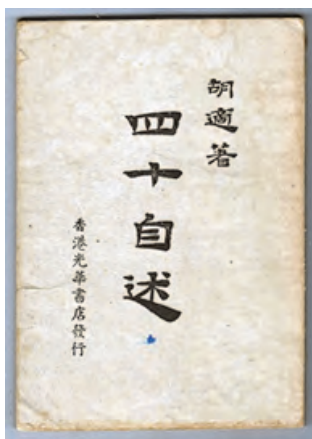 胡適著
四十自述
香港光華書店發行